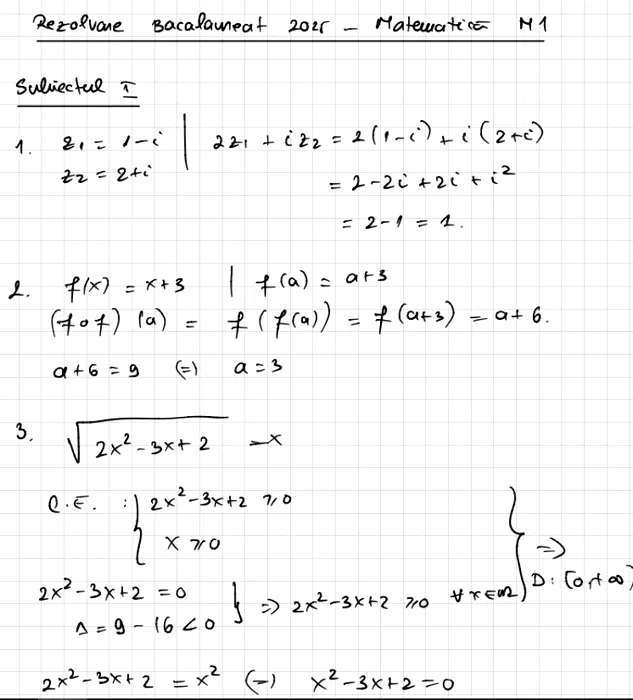 Rezolvare Bacalaureat 2025 – Matematica M1
Subiectul I
1. z₁ = 1-i | 2z₁ + iz₂ = 2(1-i) + i(2+i)
z₂ = 2+i
= 2-2i+2i+i²
= 2-1 = 1.
2. f(x) = x+3 | f(a) = a+3
(f∘f)(a) = f(f(a)) = f(a+3) = a+6.
a+6 = 9 (=) a=3
3. √(2x²-3x+2) = x
C.E. : { 2x²-3x+2 ≥0
x ≥0
} => D: [0,+∞)
2x²-3x+2 =0
Δ = 9-16<0
} => 2x²-3x+2 ≥0 ∀x∈ℝ
2x²-3x+2 = x² (=) x²-3x+2=0